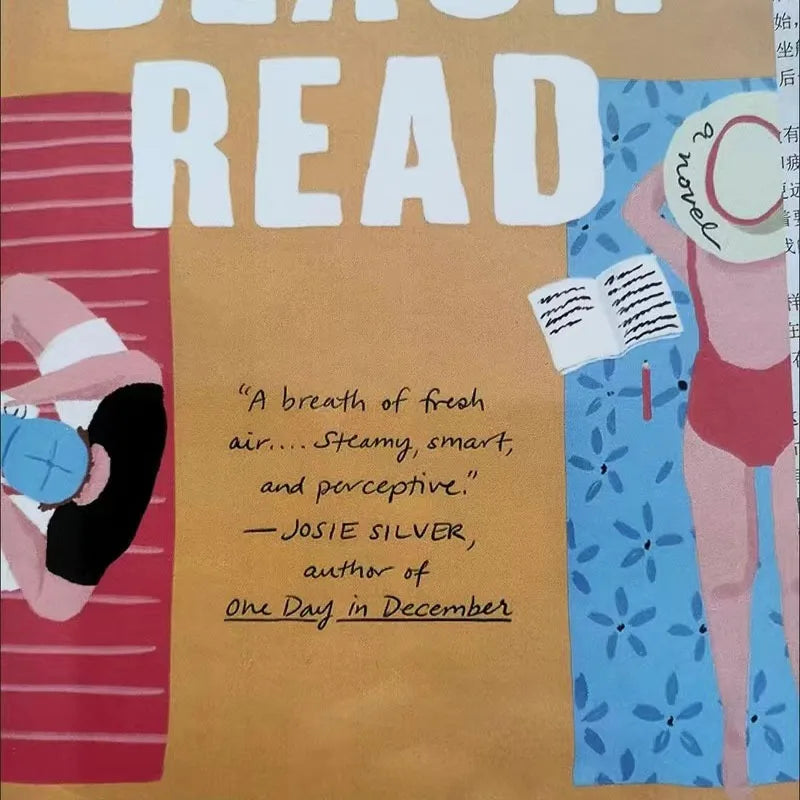 BEACH
READ
a novel
"A breath of fresh
air.... Steamy, smart,
and perceptive."
— JOSIE SILVER,
author of
One Day in December
始,
后
有
样
在